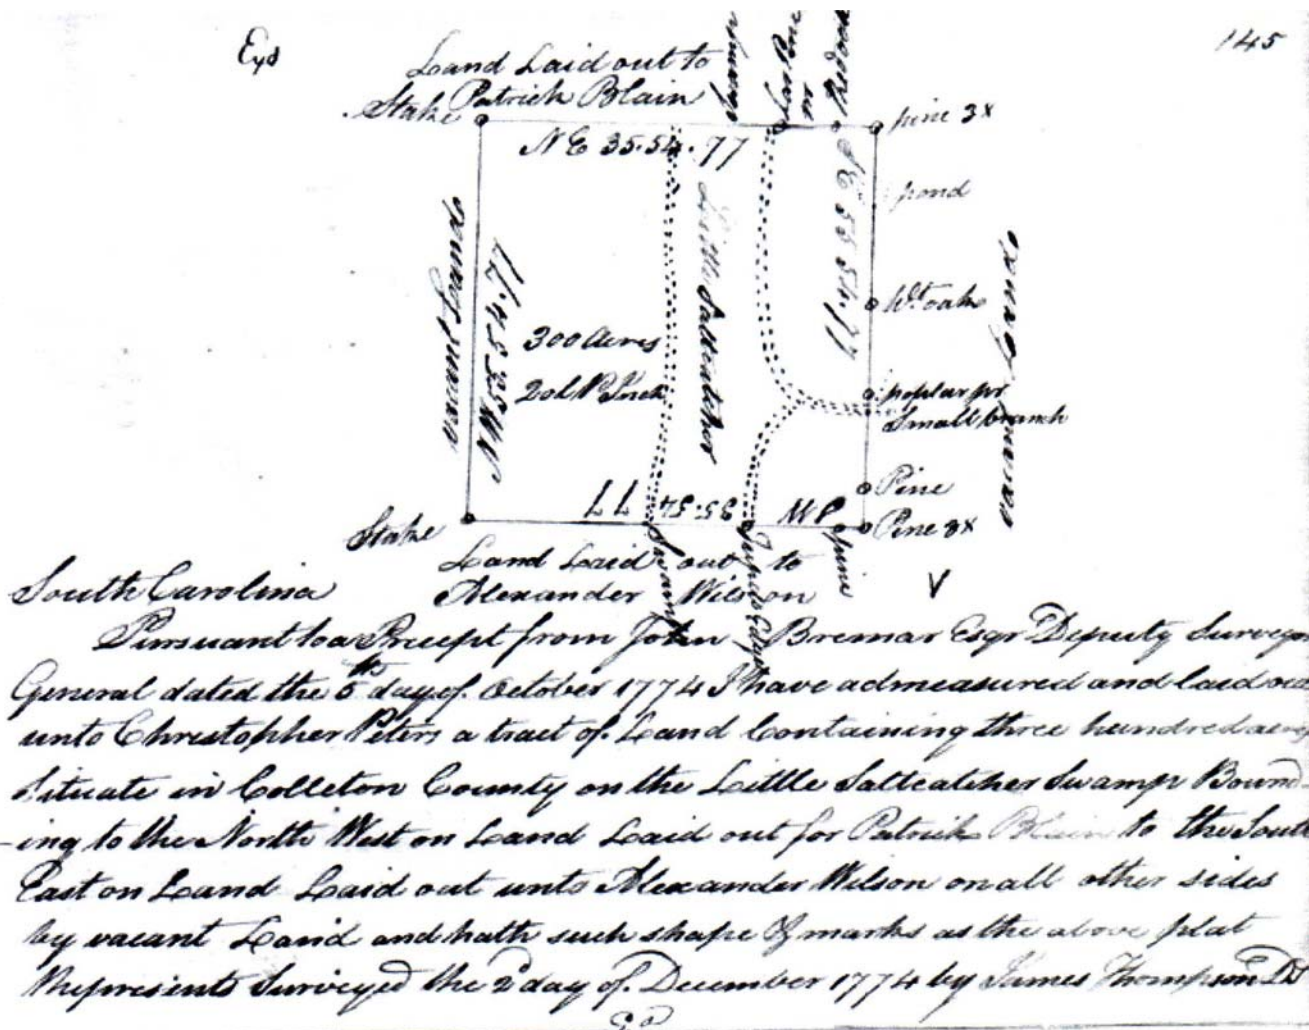 Exd
145
Land Laid out to
Patrick Blain
Stake
Swamp
Pine
Redoak
pine 3x
NE 35.54.77
pond
vacant Land
NW 55.54.77
Little Saltcatcher
SE 55 54.77
Wt oak
vacant Land
300 Acres
20 Ch P Inch
poplar pr
Small branch
Pine
77 35:54 SW
Stake
Pine 3x
Land Laid out to
Swamp
pine
Alexander Wilson
South Carolina
Pursuant to a Precept from John Bremar Esqr Deputy Surveyor
General dated the 5th day of October 1774 I have admeasured and laid out
unto Christopher Peters a tract of Land Containing three hundred acres
Situate in Colleton County on the Little Saltcatcher Swamp Bound
-ing to the North West on Land Laid out for Patrick Blain to the South
East on Land Laid out unto Alexander Wilson on all other sides
by vacant Land and hath such shape & marks as the above plat
Represents Surveyed the 2d day of December 1774 by James Thompson DS